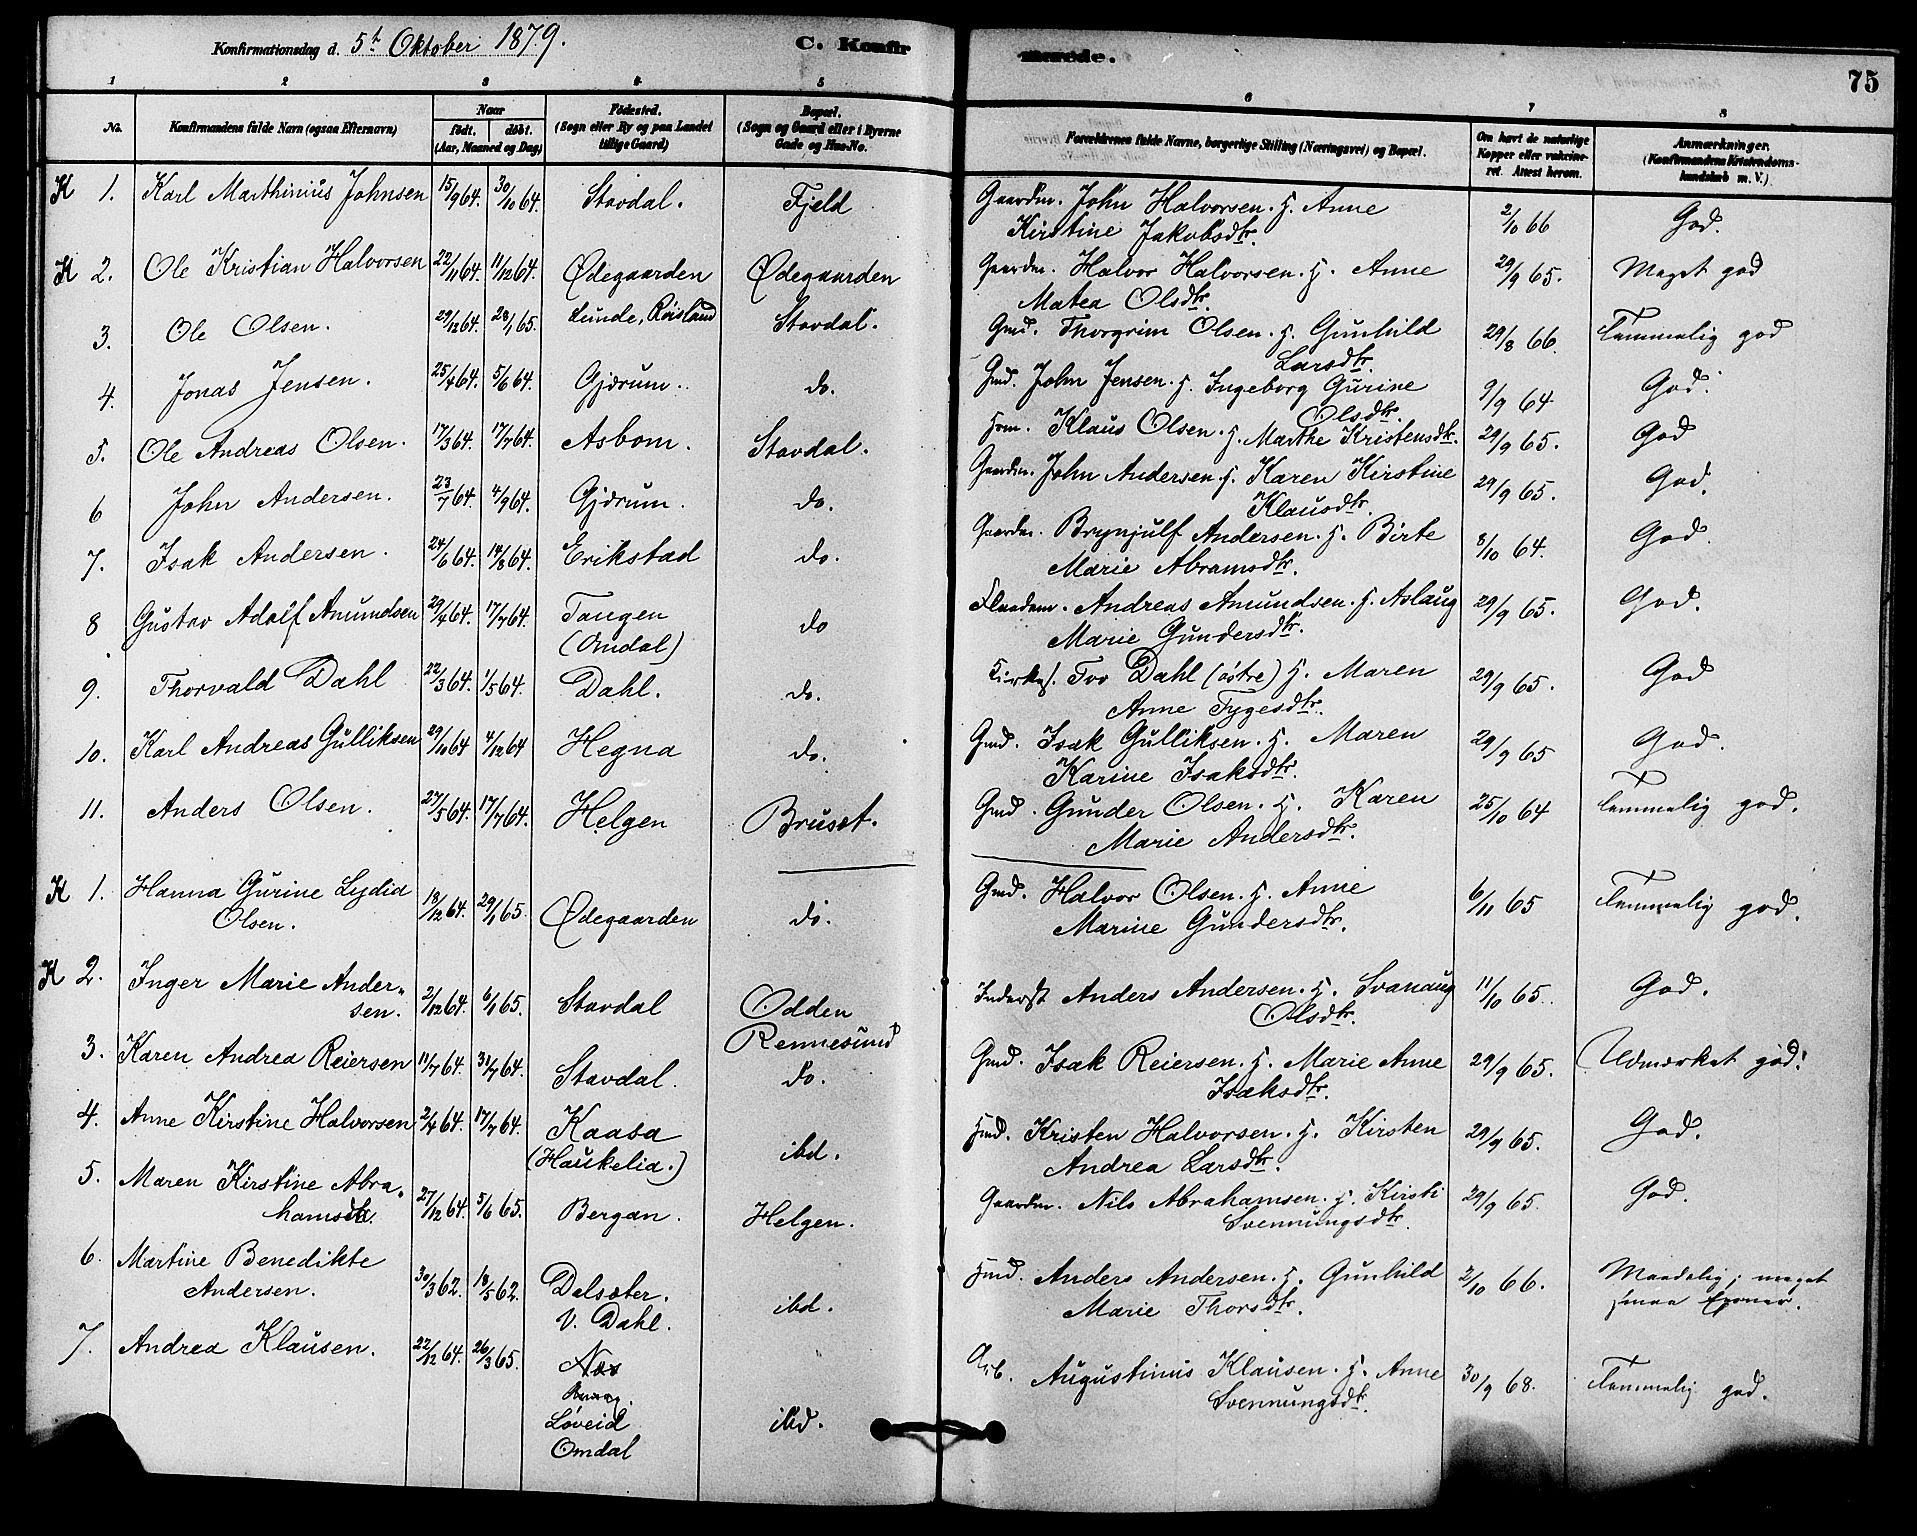 Konfirmationsdag d. 5t Oktober 1879. C. Konfir
merede.
75
1 2 3 4 5
6 7 8
No. Konfirmandens fulde Navn (ogsaa Efternavn) Naar født. døbt. (Aar, Maaned og Dag) Fødested. (Sogn eller By og paa Landet tillige Gaard) Bopæl. (Sogn og Gaard eller i Byerne Gade og Hus-No.
Forældrenes fulde Navne, borgerlige Stilling (Næringsvei) og Bopæl. Om havt de naturlige Kopper eller vakcineret. Attest herom. Anmærkninger. (Konfirmandens Kristendomskundskab m. V.)
K 1. Karl Marthinius Johnsen 15/9 64. 30/10 64. Stavdal. Fjeld Gaardm. John Halvorsen. H. Anne
Kirstine Jakobsdtr. 2/10 66 God.
K 2. Ole Kristian Halvorsen 22/11 64. 11/12 64. Ødegaarden Ødegaarden Gaardm. Halvor Halvorsen. H. Anne
Matea Olsdtr. 29/9 65. Meget god
3. Ole Olsen. 29/12 64. 28/1 65. Lunde, Røisland Stavdal. Gmd. Thorgrim Olsen. H. Gunhild
Larsdtr. 29/8 66. Temmelig god
4. Jonas Jensen. 25/4 64. 5/6 64. Gjærum. do. Gmd. John Jensen. H. Ingeborg Gurine
Olsdtr. 9/9 64 God.
5. Ole Andreas Olsen. 17/3 64. 17/7 64. Asbom. Stavdal. Klaus Olsen. H. Marthe Kristensdtr. 29/9 65. God
6 John Andersen. 23/7 64. 4/9 64. Gjærum. do. Gaardm. John Andersen. H. Karen Kirstine
Klausdtr. 29/9 65. God.
7. Isak Andersen. 24/6 64. 14/8 64. Erikstad do. Gaardm. Brynjulf Andersen. H. Birte
Marie Abramsdtr. 8/10 64. God.
8 Gustav Adolf Amundsen 29/4 64. 17/7 64. Tangen
(Omdal) do Andreas Amundsen. H. Aslaug
Marie Gundersdtr. 29/9 65. God.
9. Thorvald Dahl 22/3 64. 1/5 64. Dahl. do. Kirkes. Tov Dahl (østre) H. Maren
Anne Tygesdtr. 29/9 65. God
10. Karl Andreas Gulliksen 29/10 64 4/12 64 Hegna do. Gmd. Isak Gulliksen. H. Maren
Karine Isaksdtr. 29/9 65 God.
11. Anders Olsen. 27/5 64. 17/7 64. Helgen Bruset. Gmd. Gunder Olsen. H. Karen
Marie Andersdtr. 25/10 64 Temmelig god.
K 1. Hanna Gurine Lydia
Olsen. 18/12 64. 29/1 65. Ødegaarden do. Gmd. Halvor Olsen. H. Anne
Marine Gundersdtr. 6/11 65 Temmelig god.
K 2. Inger Marie Ander-
sen. 2/12 64. 6/1 65. Stavdal Odden
Rennesund Inderst Anders Andersen. H. Svanaug
Olsdtr. 11/10 65. God.
3. Karen Andrea Reiersen 11/7 64. 31/7 64. Stavdal. do. Gmd. Isak Reiersen. H. Marie Anne
Isaksdtr. 29/9 65. Udmærket god!
4. Anne Kirstine Halvorsen 2/4 64. 17/7 64. Kaasa
(Haukelia.) ibd. Hmd. Kristen Halvorsen. H. Kirsten
Andrea Larsdtr. 29/9 65. God.
5. Maren Kirstine Abra-
hamsdtr. 27/12 64. 5/6 65. Bergan. Helgen. Gaardm. Nils Abrahamsen. H. Kirsti
Svennungsdtr. 29/9 65. God.
6. Martine Benedikte
Andersen. 30/3 62. 18/5 62. Delsæter.
V. Dahl. ibd. Hmd. Anders Andersen. H. Gunhild
Marie Thorsdtr. 2/10 66. Maadelig; meget
smaa Evner.
7. Andrea Klausen. 22/12 64. 26/3 65. Næs
Løveid
Omdal ibd. Arb. Augustinus Klausen. H. Anne
Svennungsdtr. 30/9 68. Temmelig god.